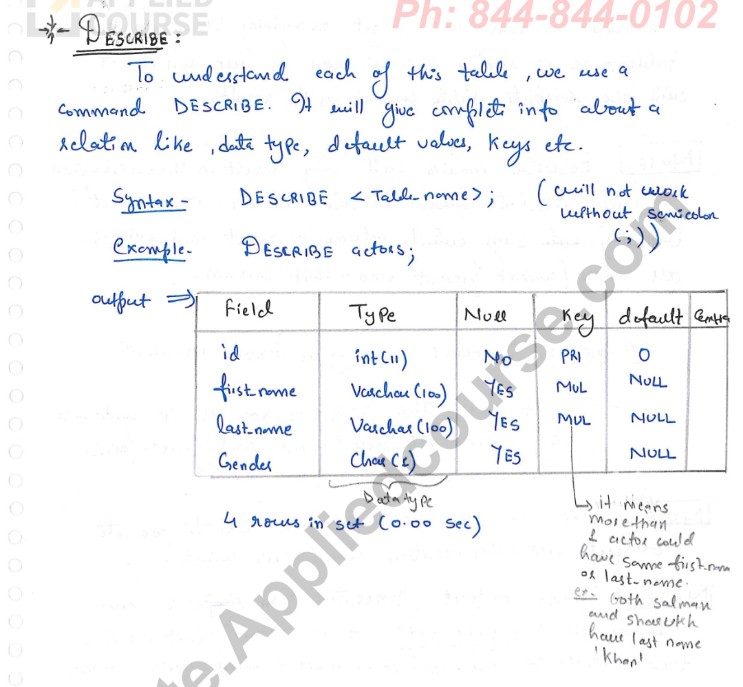 APPLIED
COURSE
Ph: 844-844-0102
DESCRIBE:
To understand each of this table, we use a
command DESCRIBE. It will give complete info about a
relation like, data type, default values, keys etc.
Syntax - DESCRIBE <Table-name>; (will not work
without semicolon
(;))
Example - DESCRIBE actors;
output ⇒
Field Type Null Key default
id int(11) NO PRI 0
first_name Varchar(100) YES MUL NULL
last_name Varchar(100) YES MUL NULL
Gender Char(1) YES NULL
Data type
4 rows in set (0.00 sec)
↳ it means
more than
1 actor could
have same first_nam
or last_name.
ex- both salman
and sharukh
have last name
'Khan'
te.Appliedcourse.com